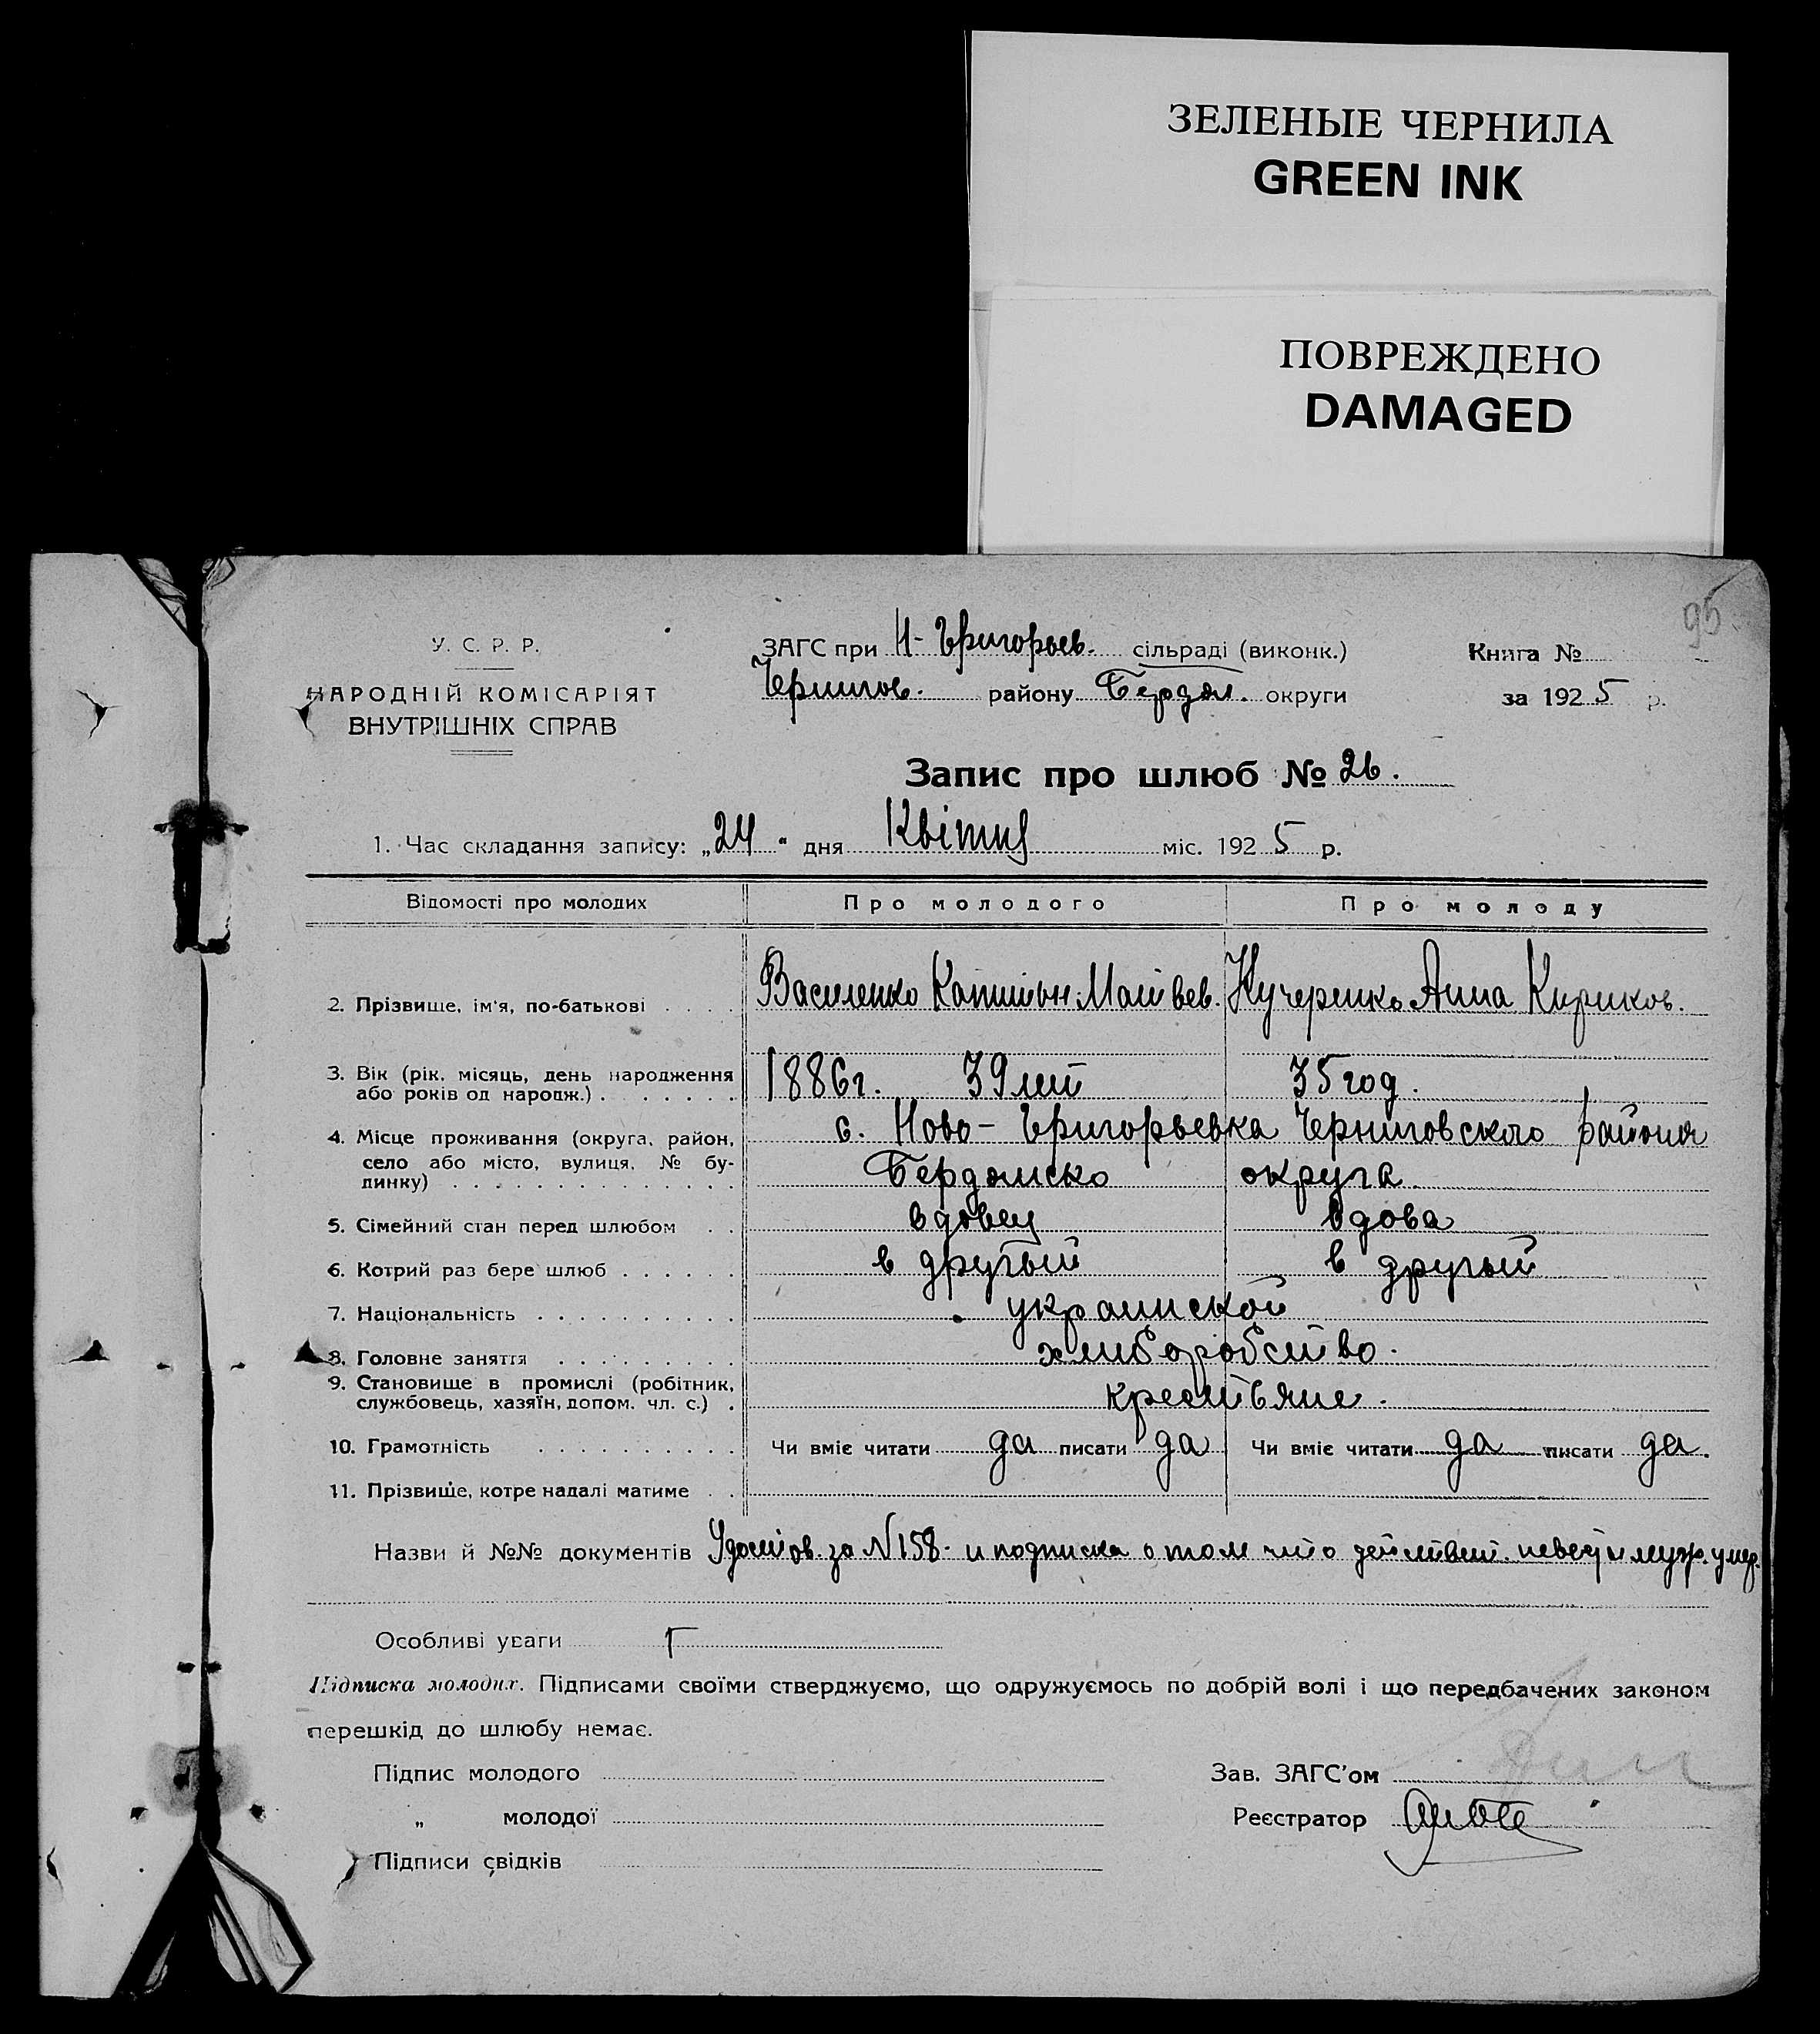 ЗЕЛЕНЫЕ ЧЕРНИЛА
GREEN INK
ПОВРЕЖДЕНО
DAMAGED
95.
У. С. Р. Р.
НАРОДНІЙ КОМІСАРІЯТ
ВНУТРІШНІХ СПРАВ
ЗАГС при Н-Григорьев. сільраді (виконк.)
Чернигов. району Бердян. округи
Книга №
за 1925 р.
Запис про шлюб № 26.
1. Час складання запису: „24“ дня Квітня міс. 1925 р.
Відомості про молодих Про молодого Про молоду
2. Прізвище, ім'я, по-батькові . . . . Василенко Капитон Матвеев. Кучеренко Анна Кириков.
3. Вік (рік, місяць, день народження
або років од народж.) . . . . . . . 1886 г. 39 лет 35 год.
4. Місце проживання (округа, район, с. Ново-Григорьевка Черниговского района
село або місто, вулиця, № бу-
динку) . . . . . . . . . . . . . . Бердянско округа
5. Сімейний стан перед шлюбом . . вдовец вдова
6. Котрий раз бере шлюб . . . . . . в другый в другый
7. Національність . . . . . . . . . . украинской
8. Головне заняття . . . . . . . . . хлиборобство.
9. Становище в промислі (робітник,
службовець, хазяїн, допом. чл. с.) . крестьяне.
10. Грамотність . . . . . . . . . . Чи вміє читати да писати да Чи вміє читати да писати да.
11. Прізвище, котре надалі матиме . .
Назви й №№ документів Удостов. за N 158. и подписка о том что действит. невесты муж. умер.
Особливі уваги
Підписка молодих. Підписами своїми стверджуємо, що одружуємось по добрій волі і що передбачених законом
перешкід до шлюбу немає.
Підпис молодого
„ молодої
Підписи свідків
Зав. ЗАГС'ом
Реєстратор